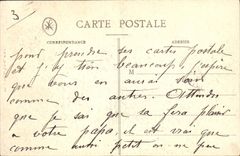 3
CARTE POSTALE
CORRESPONDANCE ADRESSE
pour prendre ses cartes postale
j'y tien beaucoup j'espère
que vous en aurai soin
M
comme des autres. Attendu
que je sais que sa fera plaisir
a votre papa, il est vrai que
comme petit on ne